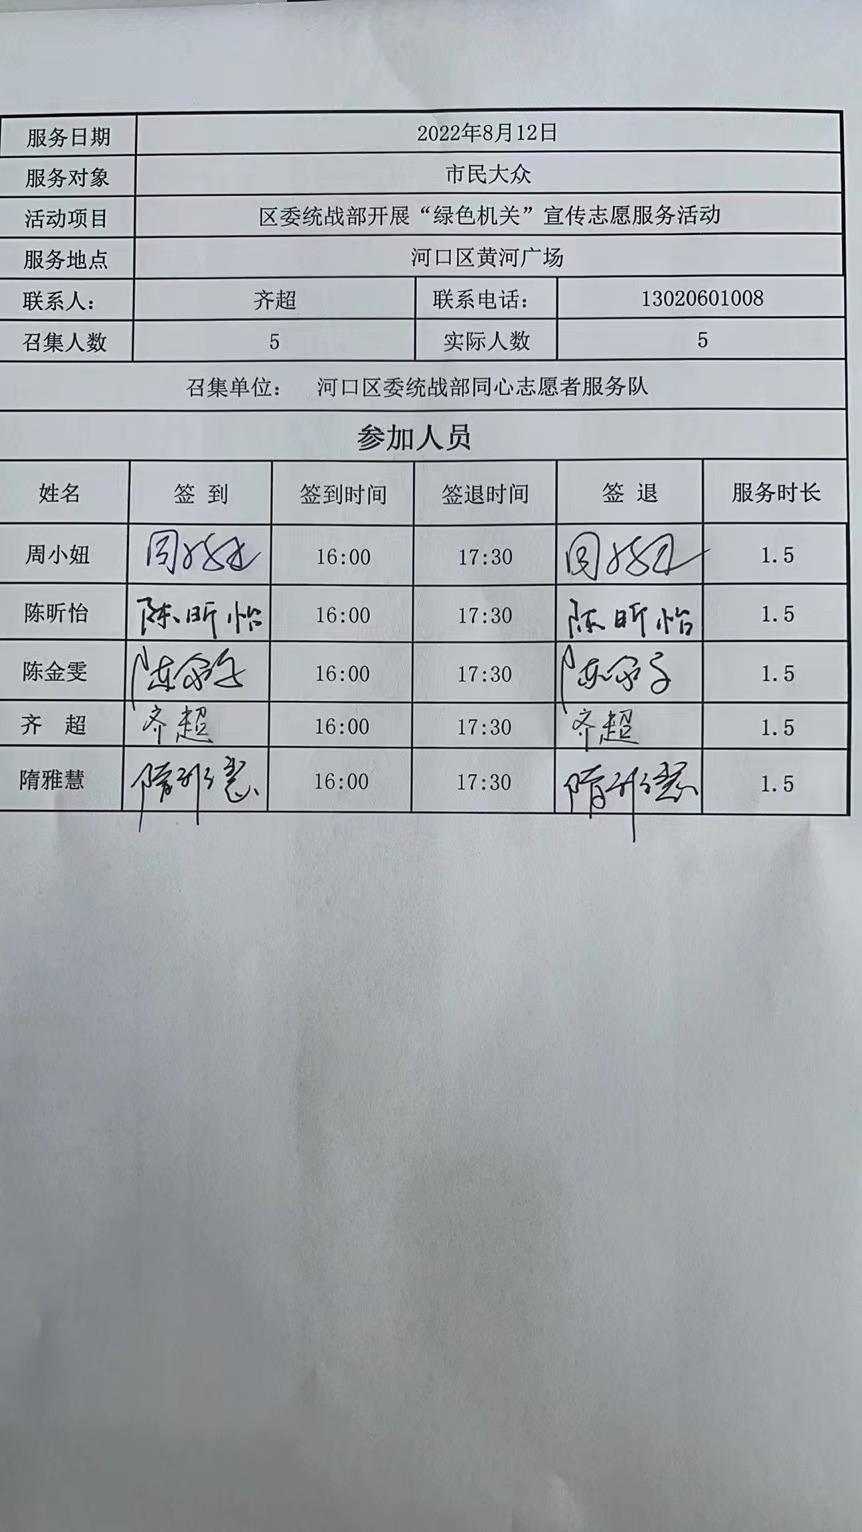 服务日期 2022年8月12日
服务对象 市民大众
活动项目 区委统战部开展“绿色机关”宣传志愿服务活动
服务地点 河口区黄河广场
联系人： 齐超 联系电话： 13020601008
召集人数 5 实际人数 5
召集单位： 河口区委统战部同心志愿者服务队
参加人员
姓名 签 到 签到时间 签退时间 签 退 服务时长
周小妞 周小妞 16:00 17:30 周小妞 1.5
陈昕怡 陈昕怡 16:00 17:30 陈昕怡 1.5
陈金雯 陈金雯 16:00 17:30 陈金雯 1.5
齐 超 齐超 16:00 17:30 齐超 1.5
隋雅慧 隋雅慧 16:00 17:30 隋雅慧 1.5